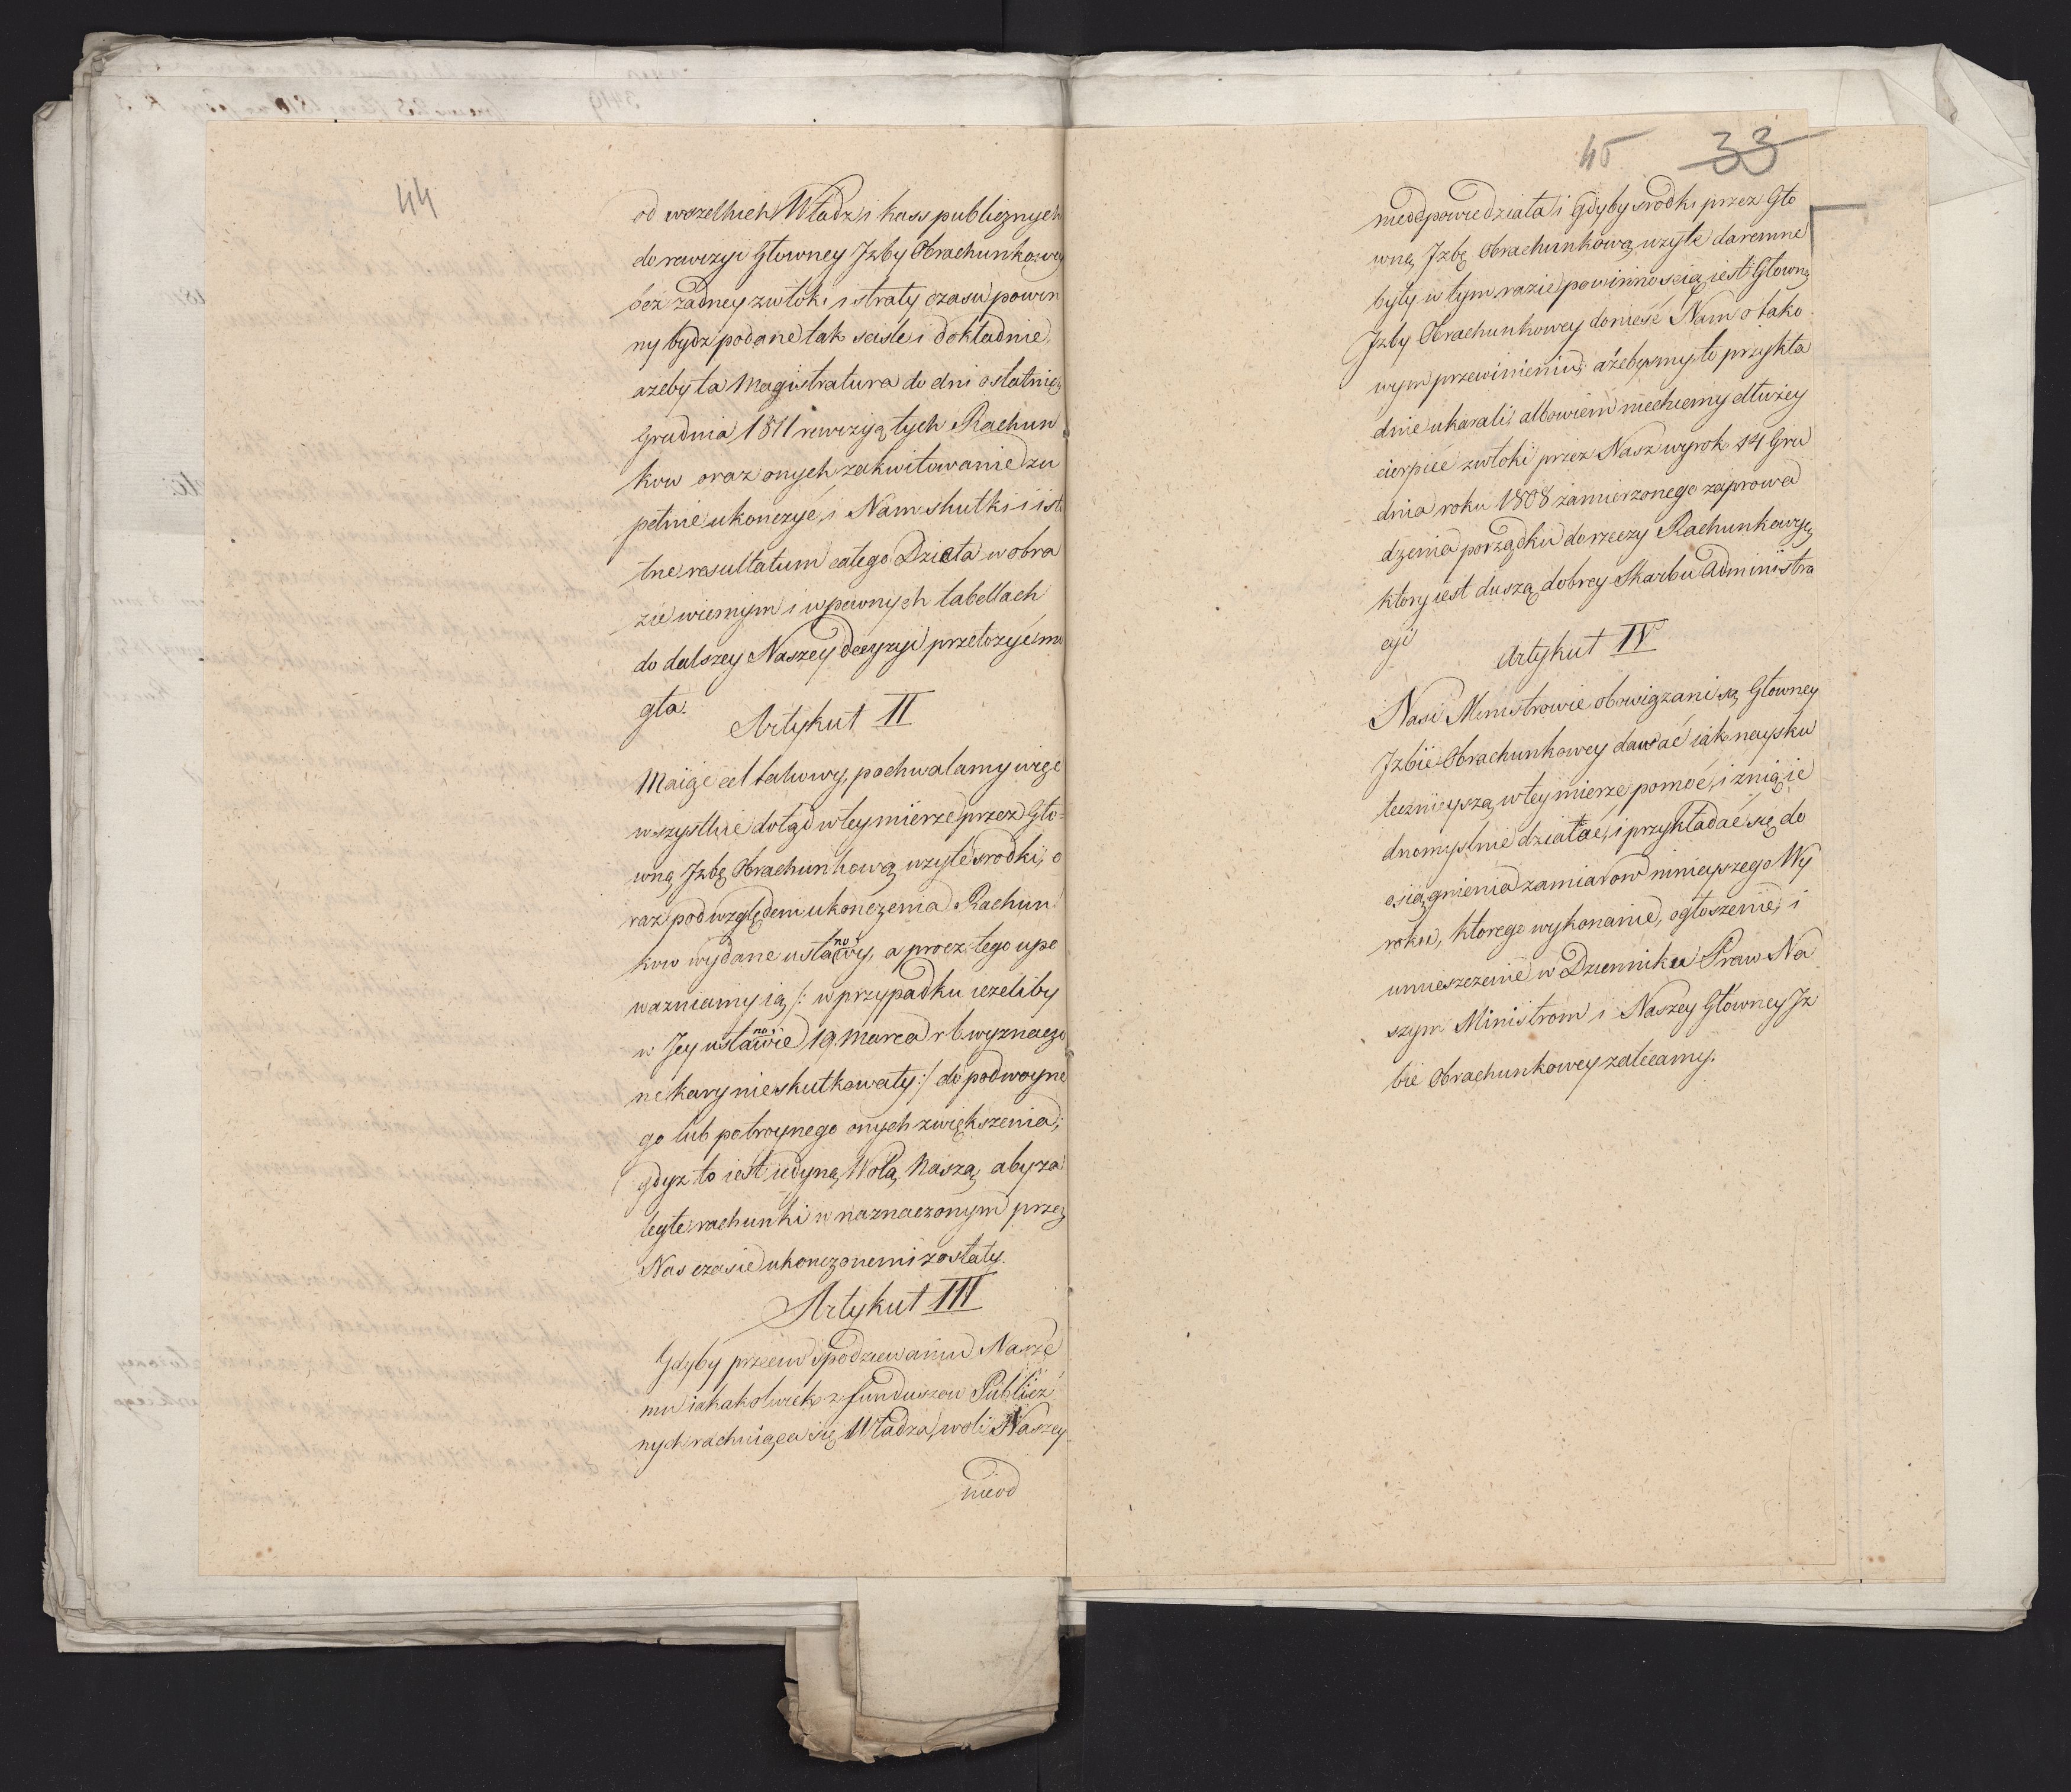 44
od wszelkich Władz i kass publicznych
do rewizyi Głowney Jzby Obrachunkowey
bez żadney zwłoki i straty czasu powin
ny bydz podane tak scisle i dokładnie,
azeby ta Magistratura do dni ostatnich
Grudnia 1811 rewizyą tych Rachun
kow oraz onych zakwitowanie zu
pełnie ukonczyć, i Nam skutki i isto
tne resultatum całego Dzieła w obra
zie wiernym i w pewnych tabellach
do dalszey Naszey decyzyi przełożyć mo
gła.
Artykuł II
Maiąc cel takowy, pochwalamy więc
wszystkie dotąd w tey mierze przez Gło=
wną Jzbę Obrachunkową uzyte srodki, o
raz pod względem ukonczenia Rachun
kow wydane ustanowy, a procz tego upo
wazniamy ią /: w przypadku iezeliby
w Jey ustanowie 19 Marca r b wyznaczo
ne kary nieskutkowały :/ do podwoyne
go lub potroynego onych zwiększenia;
gdyz to iest iedyną Wolą Naszą, aby za
ległe rachunki w naznaczonym przez
Nas czasie ukonczonemi zostały.
Artykuł III
Gdyby przeciw spodziewaniu Nasze
mu iakakolwiek z funduszow Publicz
nych rachuiąca się Władza, woli Naszey
nieod
45 33
nieodpowiedziała i Gdyby srodki przez Gło
wną Jzbę Obrachunkową uzyte daremne
były, w tym razie powinnoscią iest Głowney
Jzby Obrachunkowey donieść Nam o tako
wym przewinieniu; ażebysmy to przykła
dnie ukarali, albowiem niechcemy dłużey
cierpieć zwłoki przez Nasz wyrok 14 Gru
dnia roku 1808 zamierzonego zaprowa
dzenia porządku do rzeczy Rachunkowych
ktory iest duszą dobrey Skarbu Administra
cyi
Artykuł IV
Nasi Ministrowie obowiązani są Głowney
Jzbie Obrachunkowey dawać iak nayskut
tecznieyszą w tey mierze pomoc, i z nią ie
dnomyslnie działać, i przykładać się do
osiągnienia zamiarow ninieyszego Wy
roku, ktorego wykonanie, ogłoszenie, i
umieszczenie w Dzienniku Praw Na
szym Ministrom i Naszey Głowney Jz
bie Obrachunkowey zalecamy.